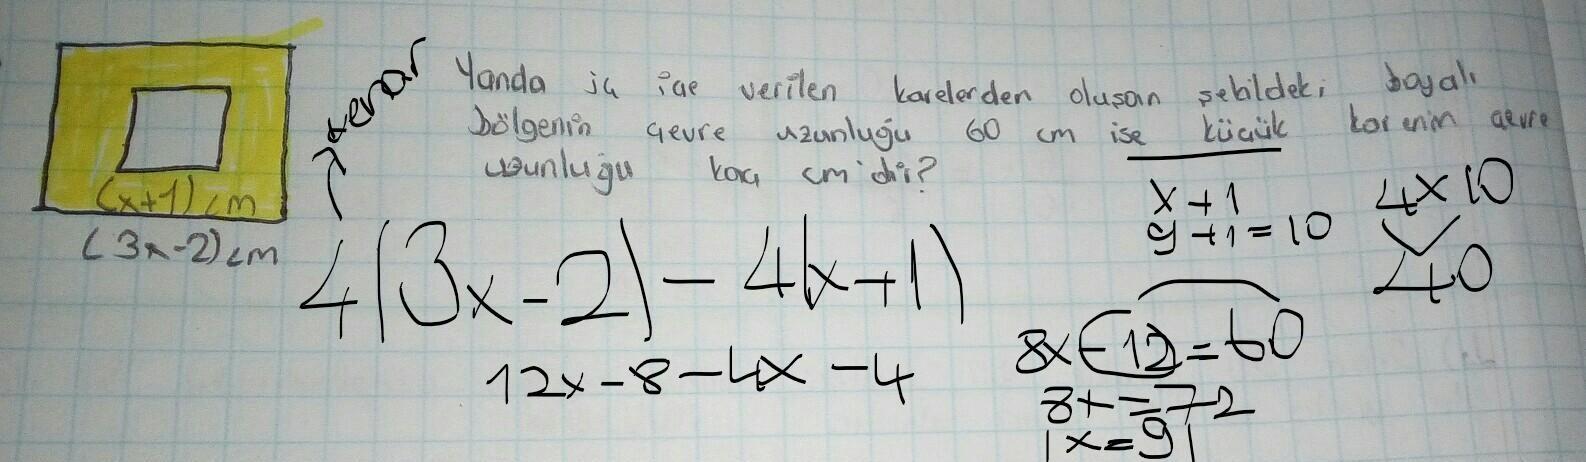 Yanda iç içe verilen karelerden oluşan şekildeki boyalı
bölgenin çevre uzunluğu 60 cm ise küçük karenin çevre
uzunluğu kaç cm'dir?
(x+1) cm
(3x-2) cm
kenar
4(3x-2) - 4(x+1)
12x-8-4x-4
8x-12=60
8x=72
x=9
x+1
9+1=10
4x10
40